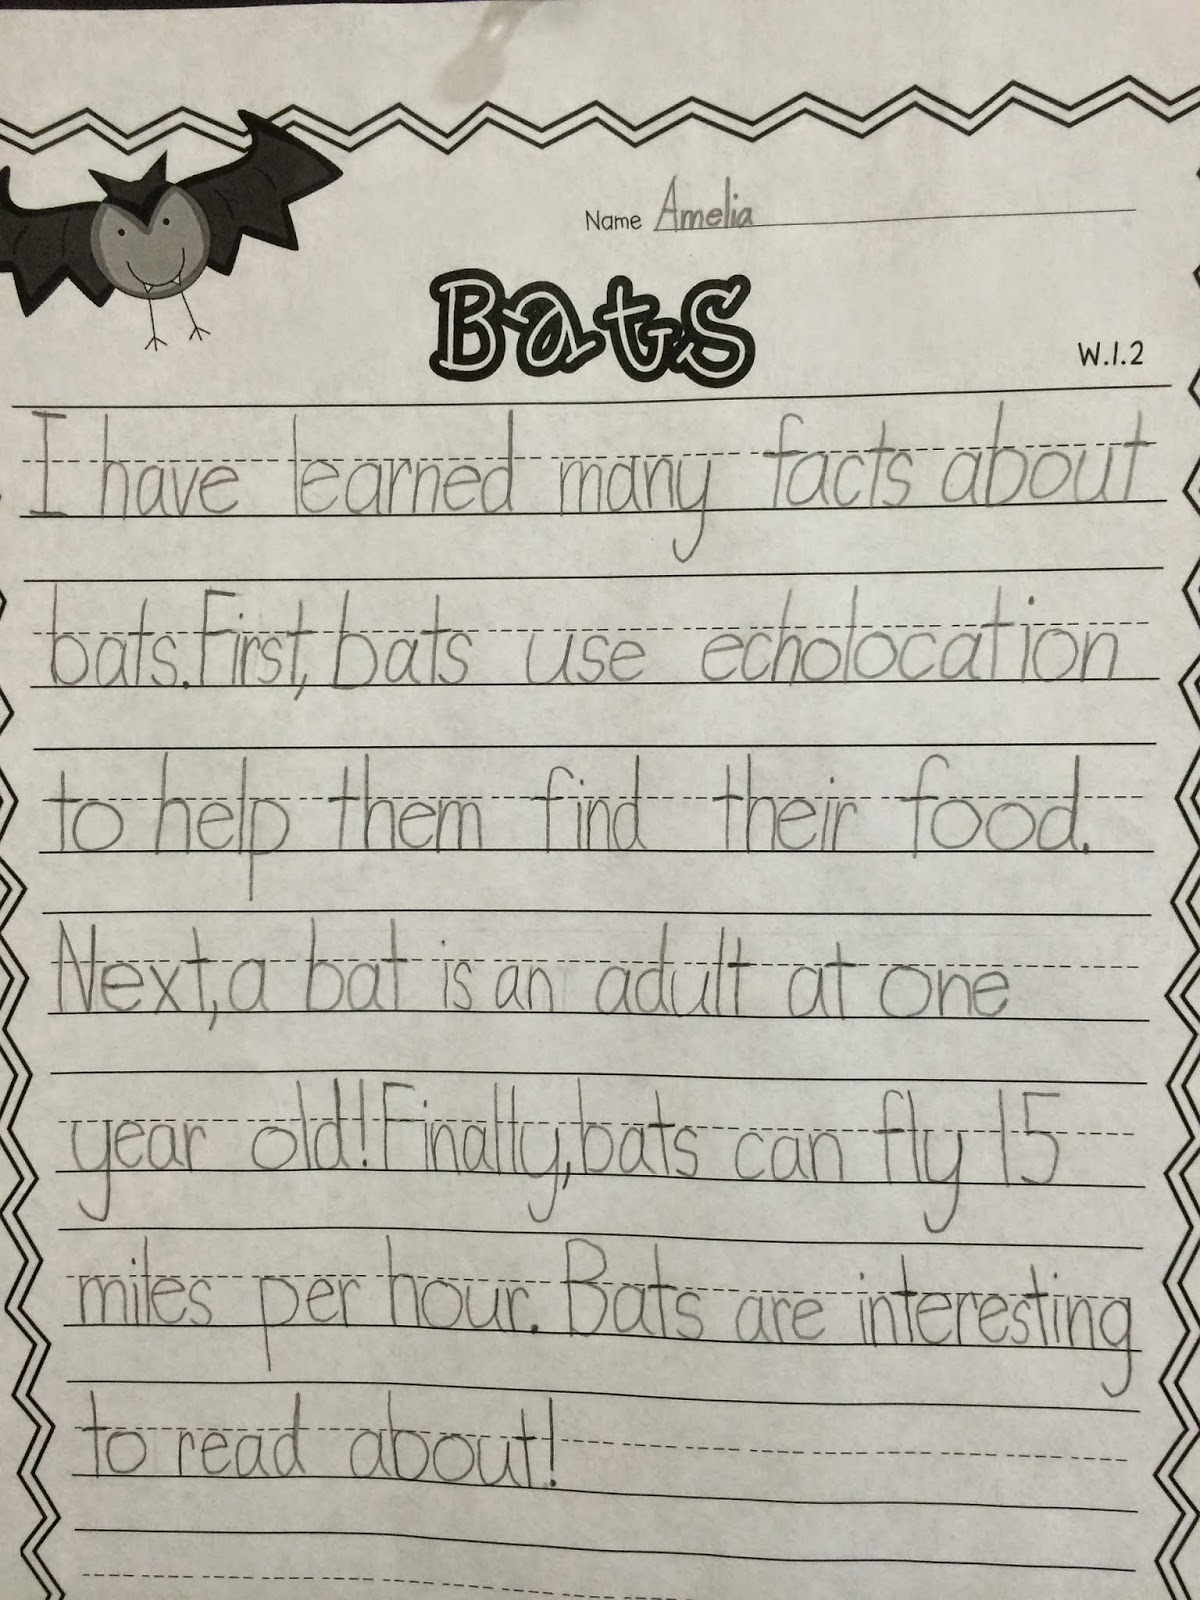 Name Amelia
Bats
W.1.2
I have learned many facts about
bats. First, bats use echolocation
to help them find their food.
Next, a bat is an adult at one
year old! Finally, bats can fly 15
miles per hour. Bats are interesting
to read about!